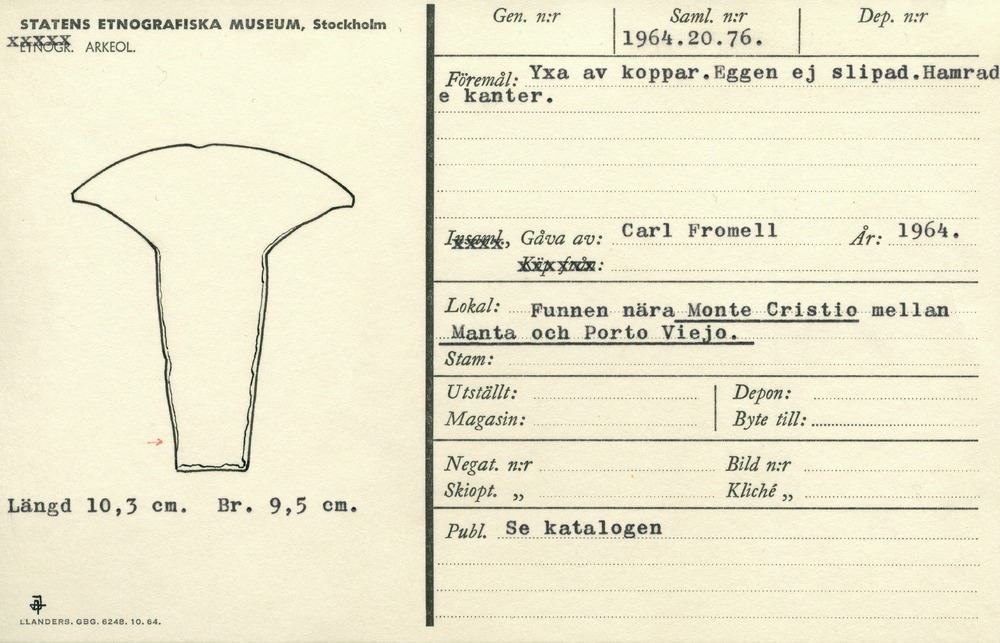 STATENS ETNOGRAFISKA MUSEUM, Stockholm
ETNOGR. ARKEOL.
Längd 10,3 cm. Br. 9,5 cm.
LLANDERS. GBG. 6248. 10. 64.
Gen. n:r
Saml. n:r
Dep. n:r
1964.20.76.
Föremål: Yxa av koppar.Eggen ej slipad.Hamrad
e kanter.
Insaml., Gåva av: Carl Fromell År: 1964.
Köp från:
Lokal: Funnen nära Monte Cristio mellan
Manta och Porto Viejo.
Stam:
Utställt: Depon:
Magasin: Byte till:
Negat. n:r Bild n:r
Skiopt. „ Kliché „
Publ. Se katalogen